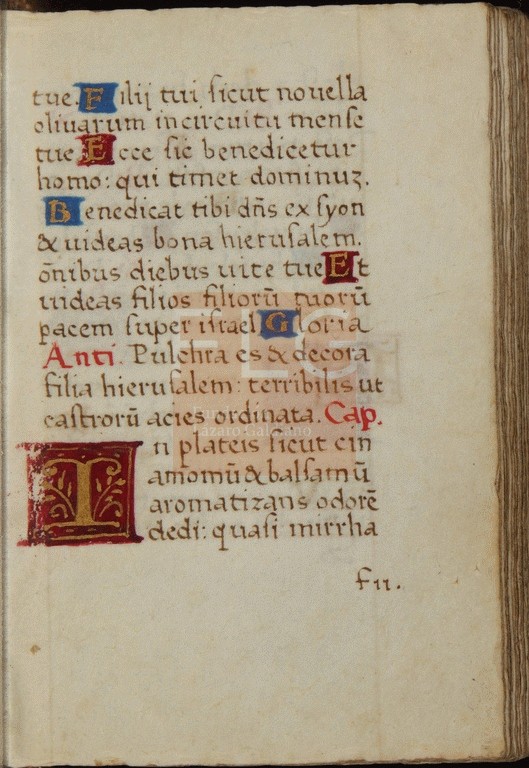 tue. Filij tui ſicut nouella
oliuarum in circuitu mense
tue. Ecce sic benedicetur
homo: qui timet dominuz.
Benedicat tibi dn̄s ex ſyon
& uideas bona hieruſalem.
on̄ibus diebus uite tue Et
uideas filios filiorū tuorū
pacem ſuper iſrael Gloria
Anti. Pulchra es & decora
filia hieruſalem: terribilis ut
castrorū acies ordinata. Cap.
In plateis ſicut cin
amomū & balſamū
aromatizans odorē
dedi: quaſi mirrha
f11.
FLG
Lázaro Galdiano